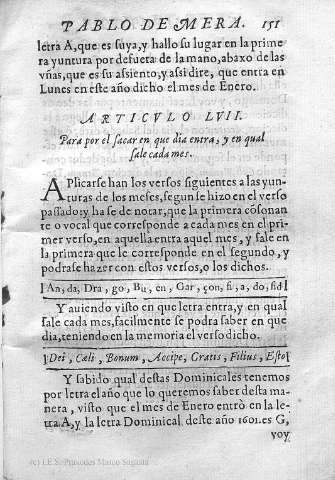 PABLO DE MERA. 151
letra A, que es suya, y hallo su lugar en la prime
ra yuntura por defuera de la mano, abaxo de las
vñas, que es su assiento, y assi dire, que entra en
Lunes en este año dicho el mes de Enero.
ARTICVLO LVII.
Para por el sacar en que dia entra, y en qual
sale cada mes.
APlicarse han los versos siguientes a las yun-
turas de los meses, segun se hizo en el verso
passado: y ha se de notar, que la primera cõsonan
te o vocal que corresponde a cada mes en el pri
mer verso, en aquella entra aquel mes, y sale en
la primera que le corresponde en el segundo, y
podrase hazer con estos versos, o los dichos.
[An, da, Dra, go, Bu, en, Gar, çon, fi, a, do, sid]
Y auiendo visto en que letra entra, y en qual
sale cada mes, facilmente se podra saber en que
dia, teniendo en la memoria el verso dicho.
[Dei, Cæli, Bonum, Accipe, Gratis, Filius, Esto]
Y sabido qual destas Dominicales tenemos
por letra el año que lo queremos saber desta ma
nera, visto que el mes de Enero entrò en la le-
tra A, y la letra Dominical deste año 1601. es G,
voy
(c) I.E.S. Práxedes Mateo Sagasta